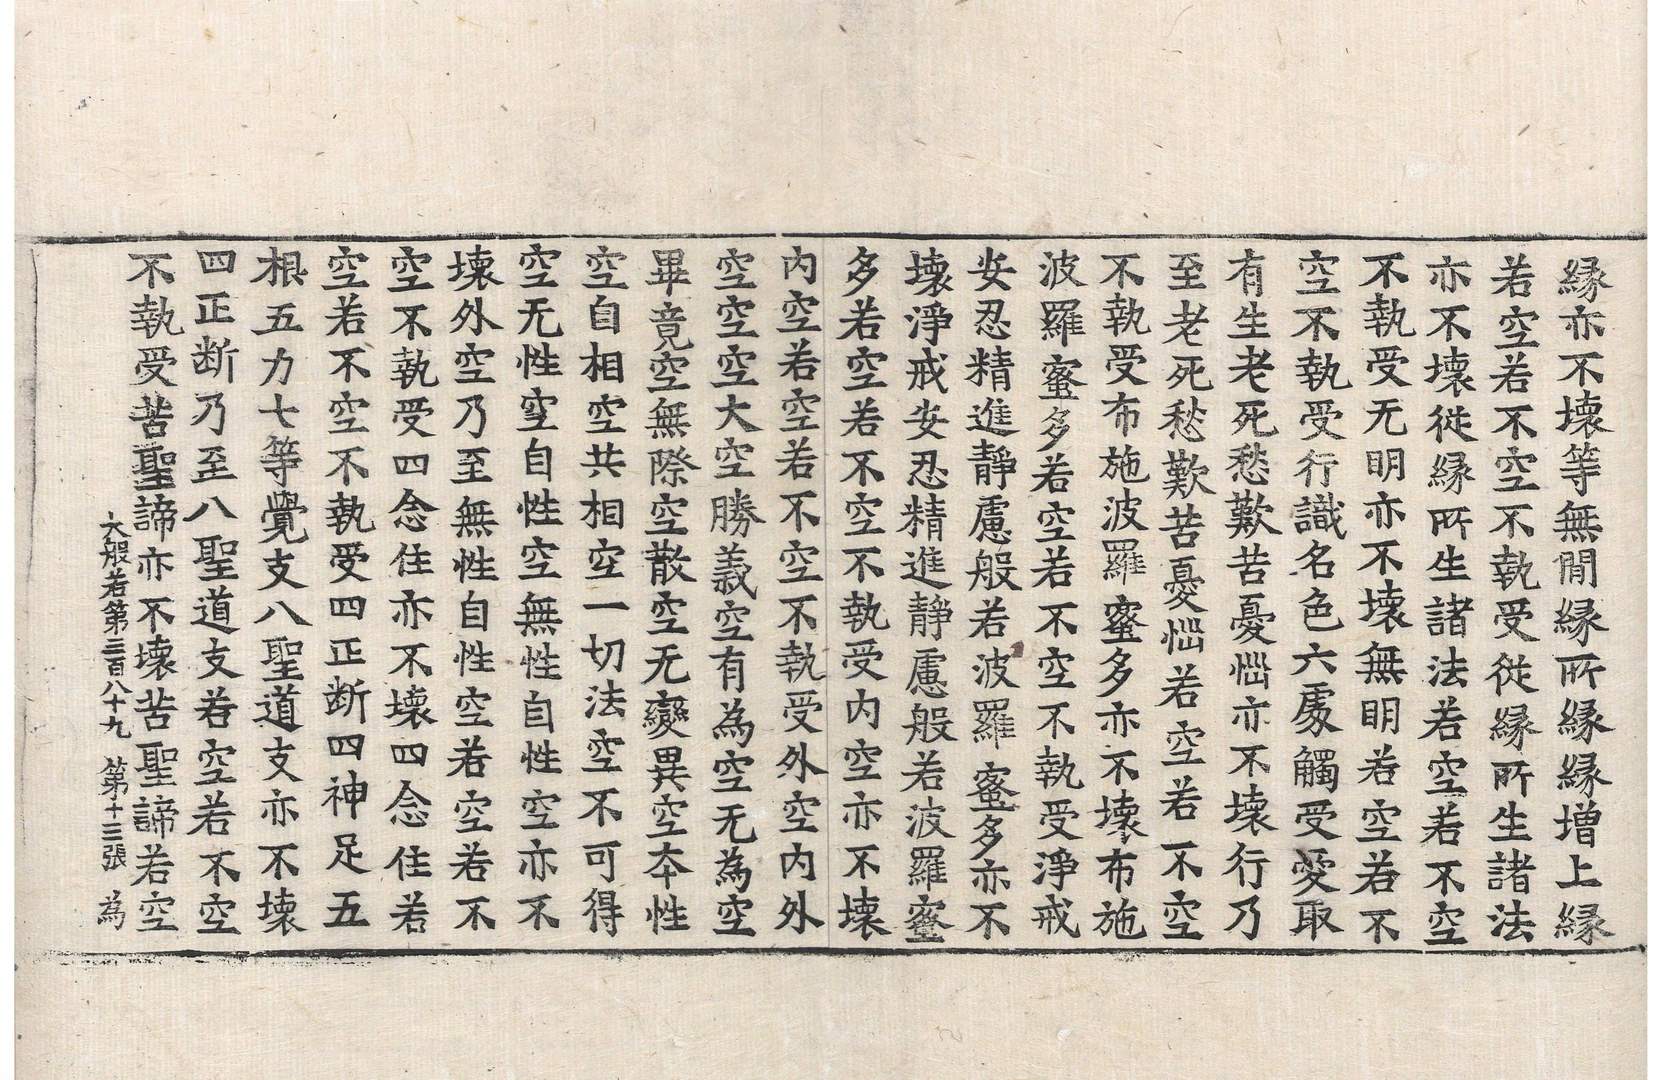 縁亦不壞等無閒縁所縁縁增上縁
若空若不空不執受從縁所生諸法
亦不壞從縁所生諸法若空若不空
不執受无明亦不壞無明若空若不
空不執受行識名色六處觸受愛取
有生老死愁歎苦憂惱亦不壞行乃
至老死愁歎苦憂惱若空若不空
不執受布施波羅蜜多亦不壞布施
波羅蜜多若空若不空不執受淨戒
安忍精進靜慮般若波羅蜜多亦不
壞淨戒安忍精進靜慮般若波羅蜜
多若空若不空不執受内空亦不壞
内空若空若不空不執受外空内外
空空空大空勝義空有為空无為空
畢竟空無際空散空无變異空本性
空自相空共相空一切法空不可得
空无性空自性空無性自性空亦不
壞外空乃至無性自性空若空若不
空不執受四念住亦不壞四念住若
空若不空不執受四正断四神足五
根五力七等覺支八聖道支亦不壞
四正断乃至八聖道支若空若不空
不執受苦聖諦亦不壞苦聖諦若空
大般若第三百八十九 第十三張 為